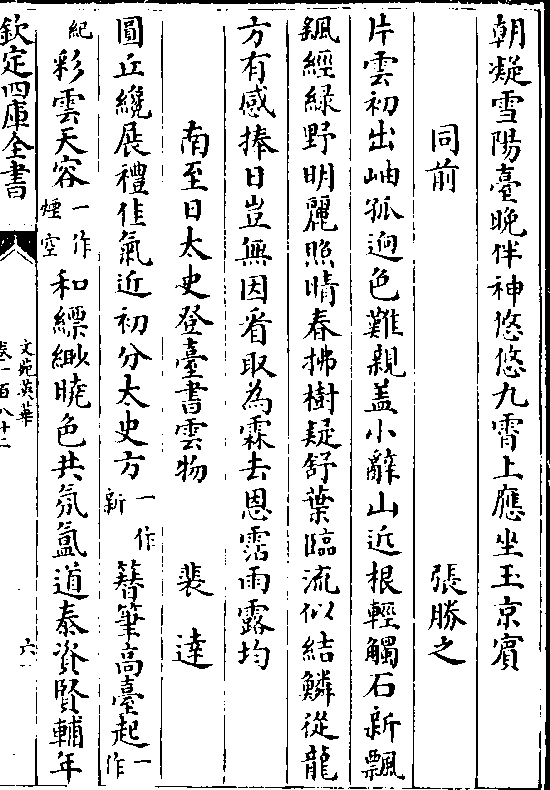 朝凝雪陽臺晩伴神悠悠九霄上應坐玉京賓
同前　張勝之
片雲初出岫孤迥色難親盖小辭山近根輕觸石新飄
飖經緑野明麗照晴春拂樹疑舒葉臨流似結鱗從龍
方有感捧日豈無因看取為霖去恩霑雨露均
南至日太史登臺書雲物　裴達
圓丘纔展禮佳氣近初分太史方一作新簪筆高臺起一作
紀彩雲天容一作煙空和縹緲曉色共氛氳道泰資賢輔年
欽定四庫全書
文苑英華
卷一百八十二
六